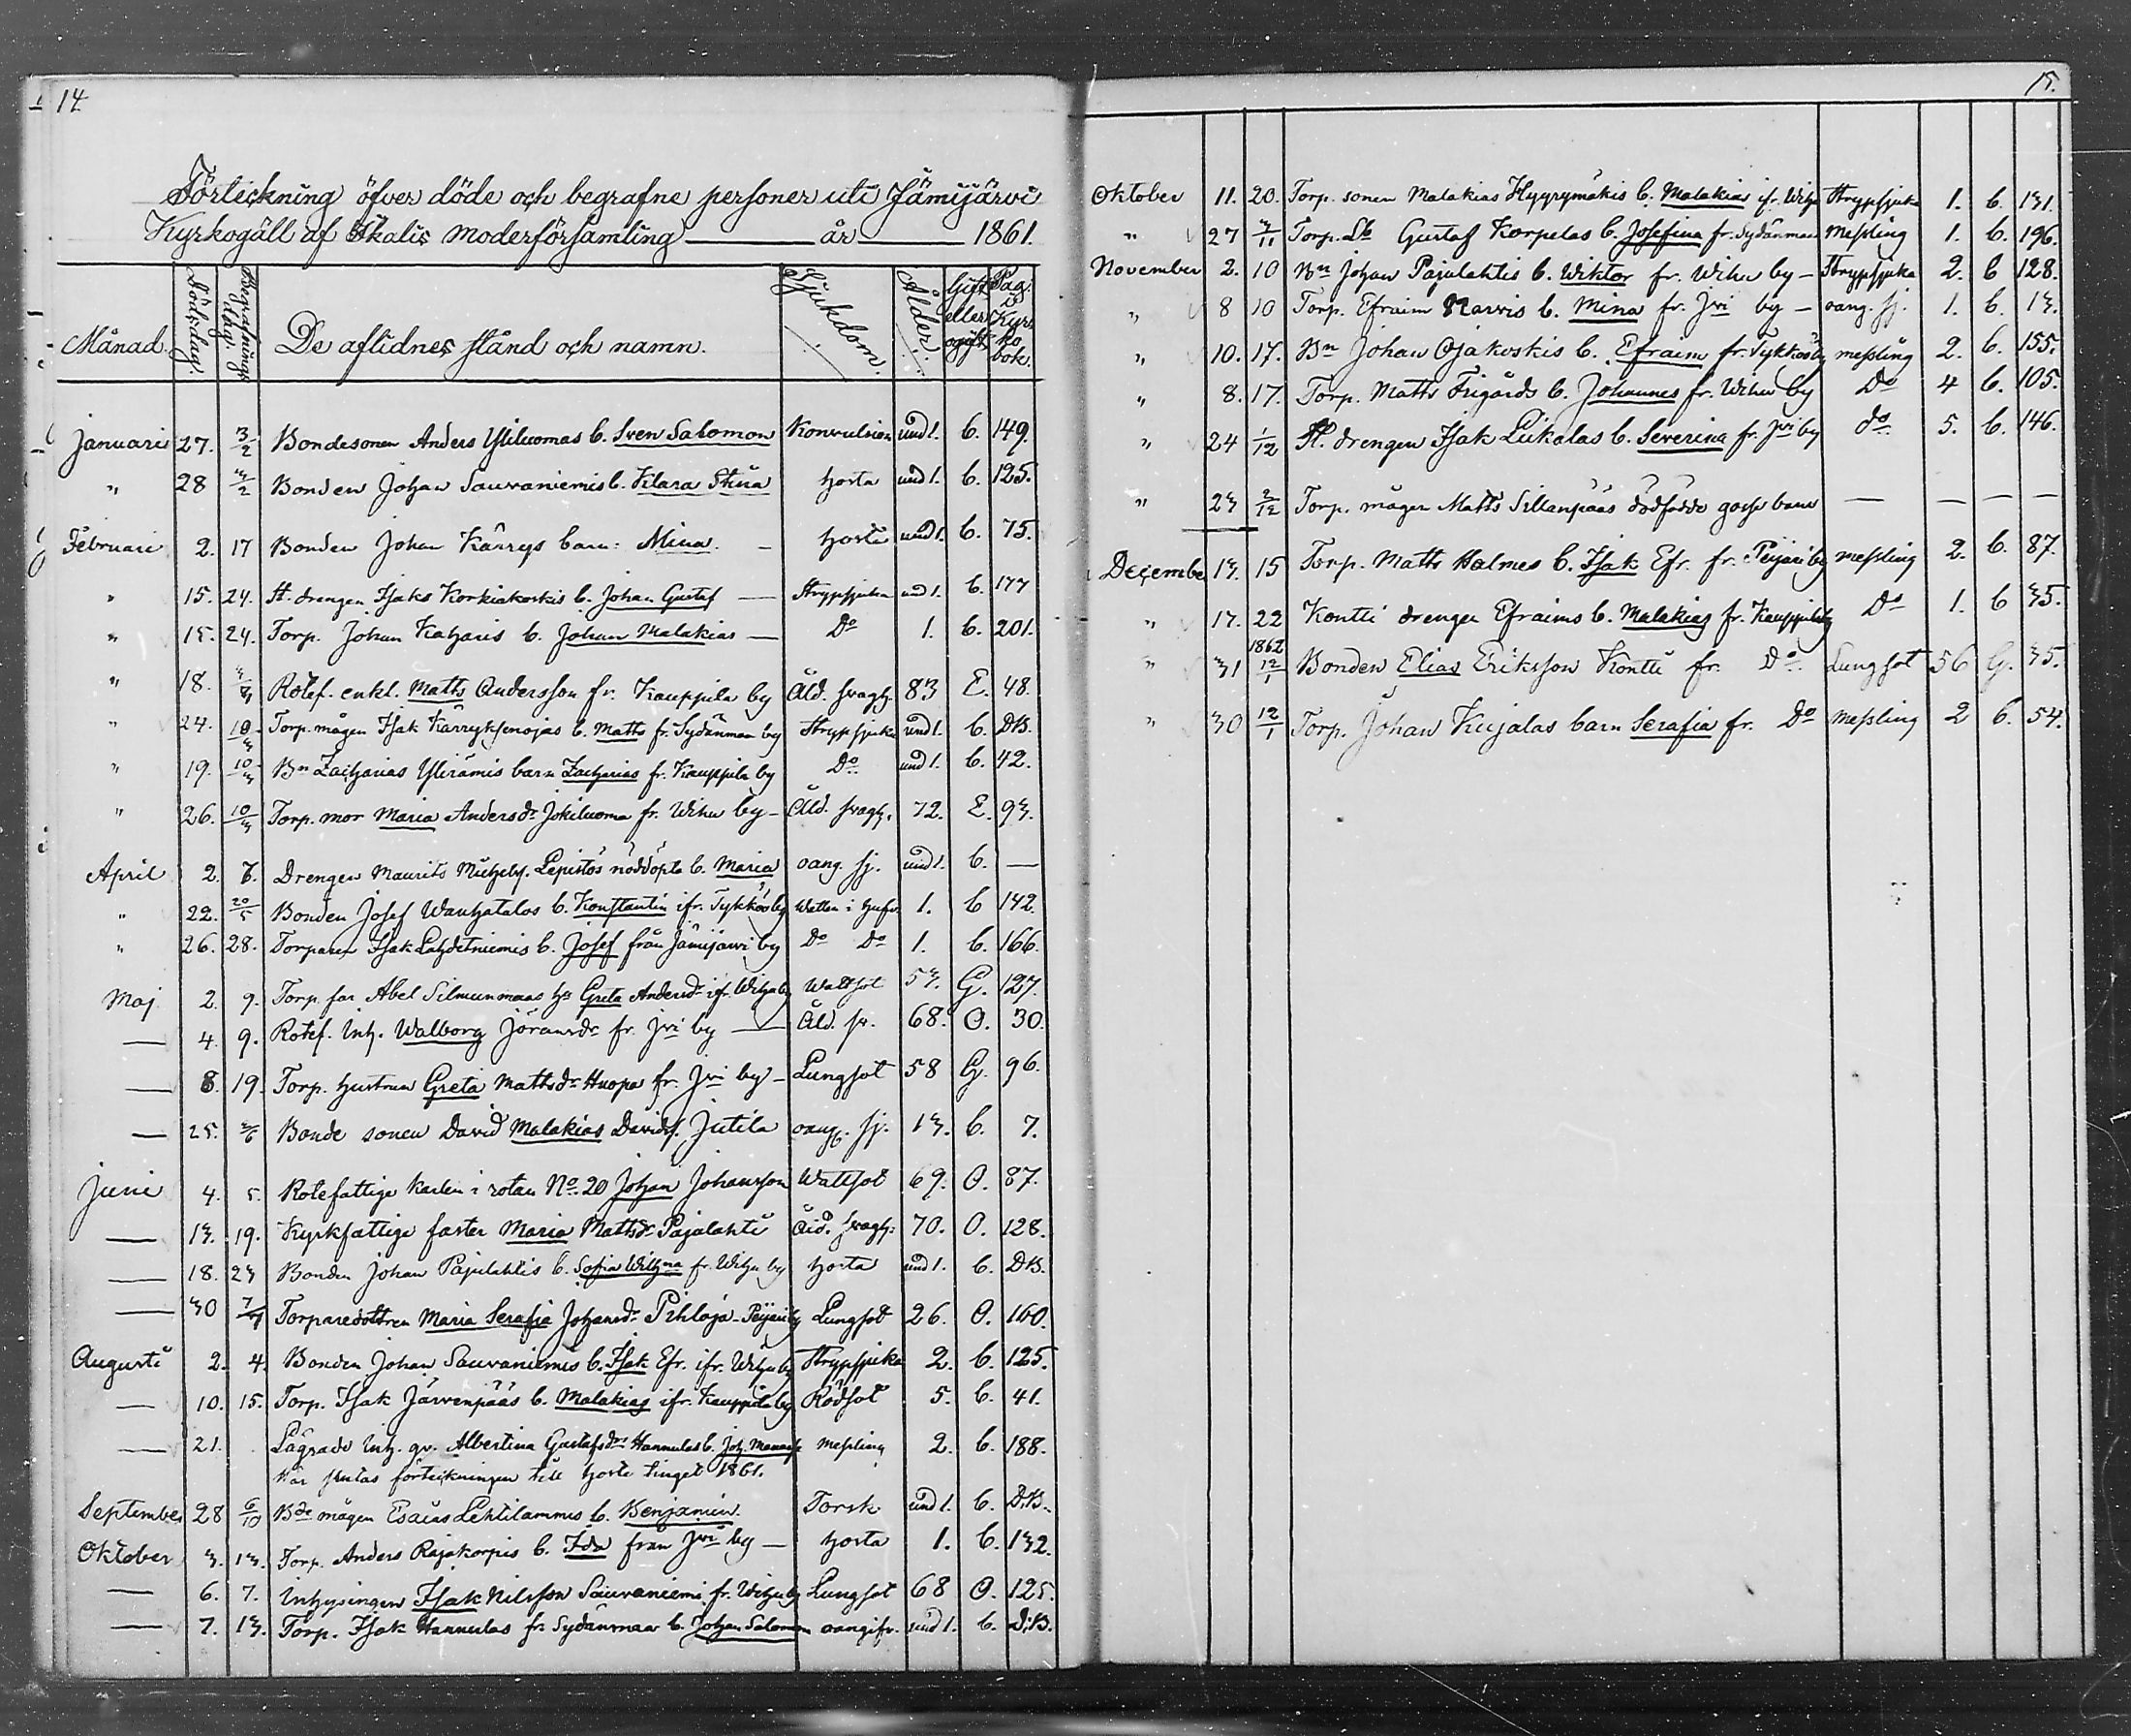 14
Förteckning öfver döde och begrafne personer uti Jämijärvi
Kyrkogäll af Ikalis moderförsamling år 1861.
Månad. Dödsdag. Begrafnings dag. De aflidnes stånd och namn. Sjukdom. Ålder. Gift eller ogift. Pag. i Kyrko bok.
Januarii 27. 3/2 Bondesonen Anders Yliluomas b. Sven Salomon Konvulsion und 1. b. 149.
" 28 3/2 Bonden Johan Sauvaniemis b. Klara Stina hosta und 1. b. 125.
Februari 2. 17 Bonden Johan Kärrys barn: Mina. — hosta und 1. b. 75.
" 15. 24. St. drengen Isaks Korkiakoskis b. Johan Gustaf — Strypsjukan und 1. b. 177
" 15. 24. Torp. Johan Katharis b. Johan Malakias — Do 1. b. 201.
" 18. Rotef. enkl. Matts Andersson fr. Kauppila by Åld. svagh. 83 E. 48.
" 24. 10/3 Torp. mågen Isak Kärryksenojas b. Matts fr. Sydänmaa by Strypsjuka und 1. b. DB.
" 19. 10/3 Bn Zacharias Ylirämis barn Zacharias fr. Kauppila by Do und 1. b. 42.
" 26. 10/3 Torp. mor Maria Andersdr Jokiluoma fr. Wihu by — Åld. svagh. 72. E. 93.
April 2. 7. Drengen Maurits Michelss. Lepistös nöddöpta b. Maria oang. sj. und 1. b. —
" 22. 20/5 Bonden Josef Wanhatalos b. Konstantin ifr. Tykköö by Watten i hufv. 1. b 142.
" 26. 28. Torparen Isak Lahdetniemis b. Josef från Jämijärvi by Do Do 1. b. 166.
Maj 2. 9. Torp. far Abel Silmunmaas hu Greta Andersdr ifr. Wihu by Wattsot 53. G. 127.
— 4. 9. Rotef. Inh. Walborg Jöransdr fr. Jvi by — Åld. sv. 68. O. 30.
— 8. 19. Torp. hustrun Greta Mattsdr Huopa fr. Jvi by — Lungsot 58 G. 96.
— 25. 2/6 Bonde sonen David Malakias Davidss. Jutila oang. sj. 13. b. 7.
Juni 4. 5. Rotefattige karlen i rotan No. 20 Johan Johansson Wattsot 69. O. 87.
— 13. 19. Kyrkfattige faster Maria Mattsdr Pajulahti Åld. svagh. 70. O. 128.
— 18. 23 Bonden Johan Pajulahtis b. Sofia Wilhna fr. Wihu by hosta und 1. b. DB.
— 30 7/7 Torparedottren Maria Serafia Johansdr Pihlaja - Peijari by Lungsot 26. O. 160.
Augusti 2. 4 Bonden Johan Sauvaniemis b. Isak Efr. ifr. Wihu by Strypsjuka 2. b. 125.
— 10. 15. Torp. Isak Järvenpääs b. Malakias ifr. Kauppila by Rödsot 5. b. 41.
— 21. Lägrade Inh. qv. Albertina Gustafsdr Hannulas b. Joh. Manasse Messling 2. b. 188.
Här slutas förteckningen till höste tinget 1861.
September 28 6/10 Bde mågen Esaias Lehtilammis b. Benjamin. Torsk und 1. b. D.B.
Oktober 3. 13. Torp. Anders Rajakorpis b. Ida från Jvi by — hosta 1. b. 132.
— 6. 7. Inhysingen Isak Nilsson Sauvaniemi fr. Wihu by Lungsot 68 O. 125.
— 7. 13. Torp. Isak Hannulas fr. Sydänmaa b. Johan Salomon oangifv. und 1. b. D.B.
15.
Oktober 11. 20. Torp. sonen Malakias Hyyrymäkis b. Malakias ifr. Wihu Strypsjuka 1. b. 131.
" 27 3/11 Torp. Gustaf Korpelas b. Josefina fr. Sydänmaa Messling 1. b. 196.
November 2. 10 Bn Johan Pajulahtis b. Wiktor fr. Wihu by — Strypsjuka 2. b 128.
" 8 10 Torp. Efraim Narvis b. Mina fr. Jvi by — oang. sj. 1. b. 13.
" 10. 17. Bn Johan Ojakoskis b. Efraim fr. Tykköö by messling 2. b. 155.
" 8. 17. Torp. Matts Frigårds b. Johannes fr. Wihu by Do 4 b. 105.
" 24 1/12 St. drengen Isak Lukalas b. Severina fr. Jvi by do 5. b. 146.
" 23 2/12 Torp. mågen Matts Sillanpääs dödfödda gosse barn — — — —
December 13. 15 Torp. Matts Halmes b. Isak Efr. fr. Peijari by messling 2. b. 87.
" 17. 22 Kontti drengen Efraims b. Malakias fr. Kauppila by Do 1. b 35.
" 31 1862 12/1 Bonden Elias Eriksson Kontti fr. Do. Lungsot 56 G. 35.
" 30 12/1 Torp. Johan Kujalas barn Serafia fr. Do messling 2 b. 54.